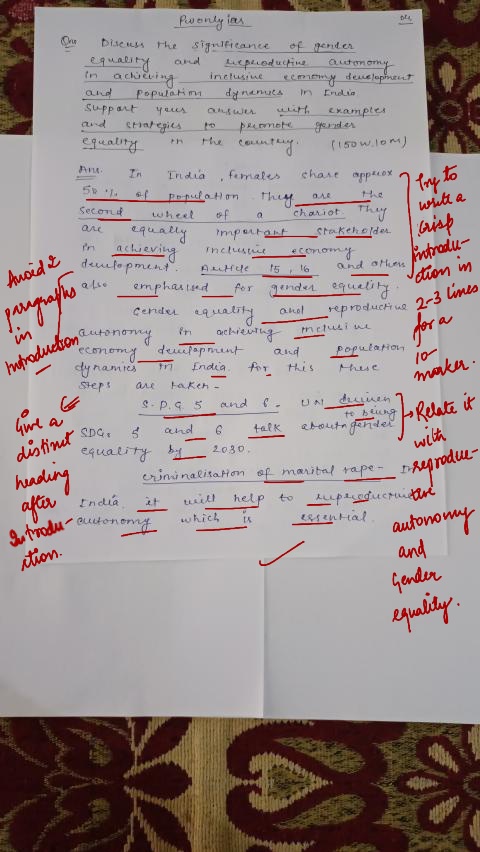 Pwonlyias
Qn. Discuss the significance of gender
equality and reproductive autonomy
in achieving inclusive economy development
and population dynamics in India
Support your answer with examples
and strategies to promote gender
equality in the country. (150W.10M)
Ans. In India, females share approx
50%. of population. They are the
second wheel of a chariot. They
are equally important stakeholder
in achieving inclusive economy
development. Article 15, 16 and others
also emphasised for gender equality.
Gender equality and reproductive
autonomy in achieving inclusive
economy development and population
dynamics in India for this these
steps are taken-
S.D.G 5 and 6 - UN driven
to being
SDGs 5 and 6 talk about gender
equality by 2030.
Criminalisation of marital rape- In
India, it will help to reproductive
autonomy which is essential.
Avoid 2
paragraphs
in
Introduction
Give a
distinct
heading
after
Introdu-
ction.
Try to
write a
crisp
introdu-
ction in
2-3 lines
for a
10-
marker.
Relate it
with
reproduc-
tive
autonomy
and
Gender
equality.